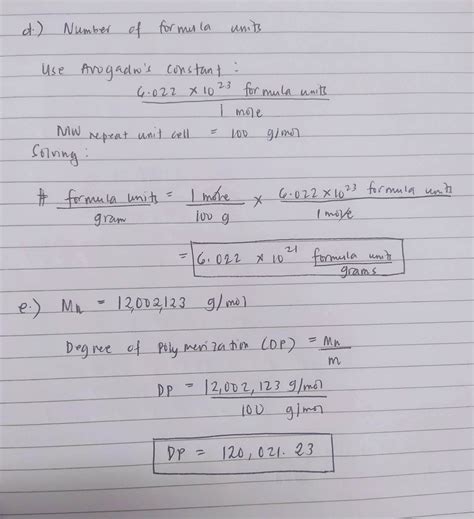 d.) Number of formula units
Use Avogadro's constant :
6.022 × 10²³ formula units
1 mole
MW repeat unit cell = 100 g/mol
Solving :
# formula units = 1 mole × 6.022 × 10²³ formula units
gram 100 g 1 mole
= 6.022 × 10²¹ formula units
grams
e.) Mn = 12,002,123 g/mol
Degree of Polymerization (DP) = Mn
m
DP = 12,002,123 g/mol
100 g/mol
DP = 120,021.23